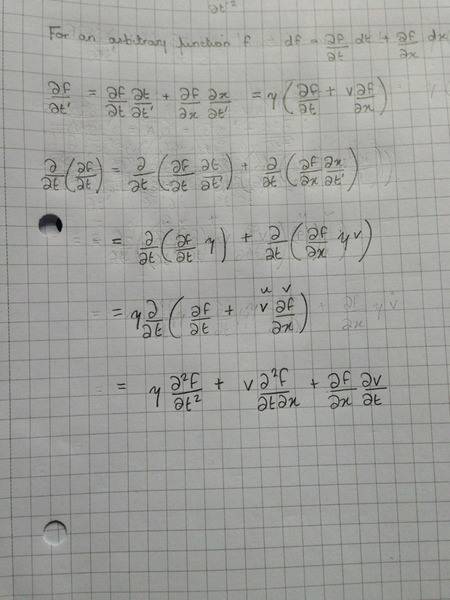 ∂t'²
For an arbitrary function f df = ∂f/∂t dt + ∂f/∂x dx
∂f/∂t' = ∂f/∂t ∂t/∂t' + ∂f/∂x ∂x/∂t' = γ(∂f/∂t + v∂f/∂x)
∂/∂t(∂f/∂t) = ∂/∂t(∂f/∂t ∂t/∂t') + ∂/∂t(∂f/∂x ∂x/∂t')
= ∂/∂t(∂f/∂t γ) + ∂/∂t(∂f/∂x γv)
u v
= γ∂/∂t(∂f/∂t + v∂f/∂x)
= γ ∂²f/∂t² + v∂²f/∂t∂x + ∂f/∂x ∂v/∂t